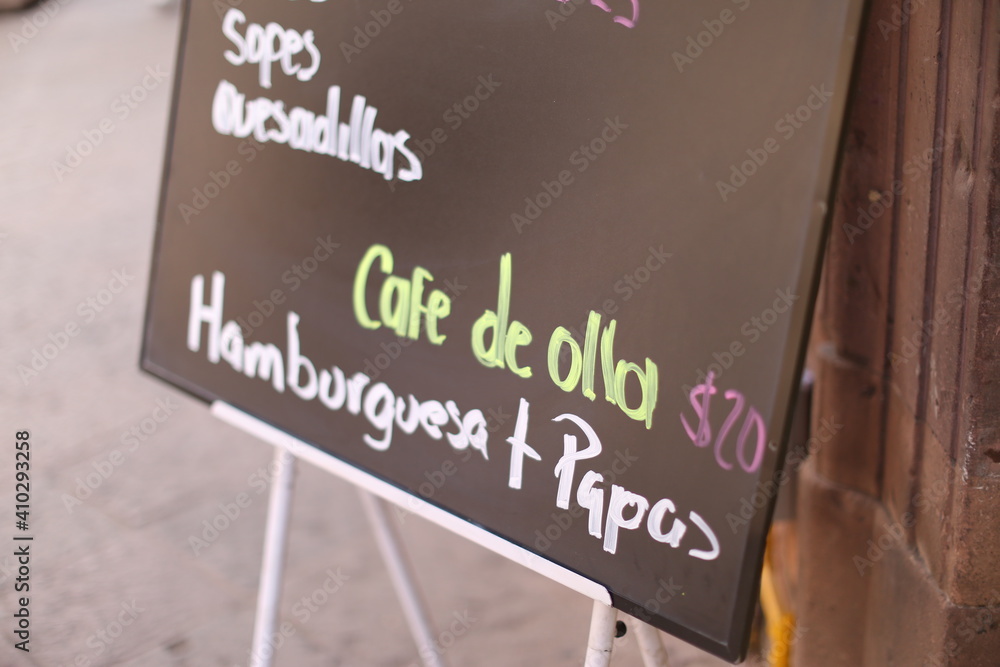 Sopes
Quesadillas
Cafe de olla $20
Hamburguesa + Papas
Adobe Stock | #410293258